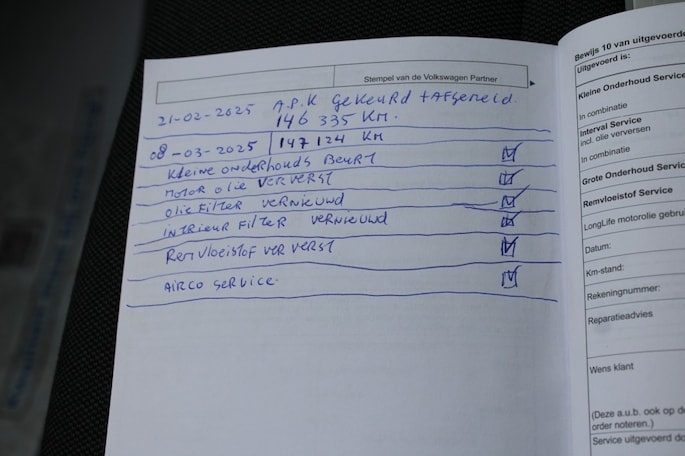 Stempel van de Volkswagen Partner
21-02-2025 A.P.K Gekeurd + Afgemeld.
146 335 KM.
08-03-2025 147 124 KM
Kleine onderhouds Beurt
Motor olie ververst
olie Filter vernieuwd
Intrieur Filter vernieuwd
Remvloeistof ver verst
Airco service.
Bewijs 10 van uitgevoerde
Uitgevoerd is:
Kleine Onderhoud Service
In combinatie
Interval Service
incl. olie verversen
In combinatie
Grote Onderhoud Service
Remvloeistof Service
LongLife motorolie
Datum:
Km-stand:
Rekeningnummer:
Reparatieadvies
Wens klant
(Deze a.u.b. ook op de
order noteren.)
Service uitgevoerd